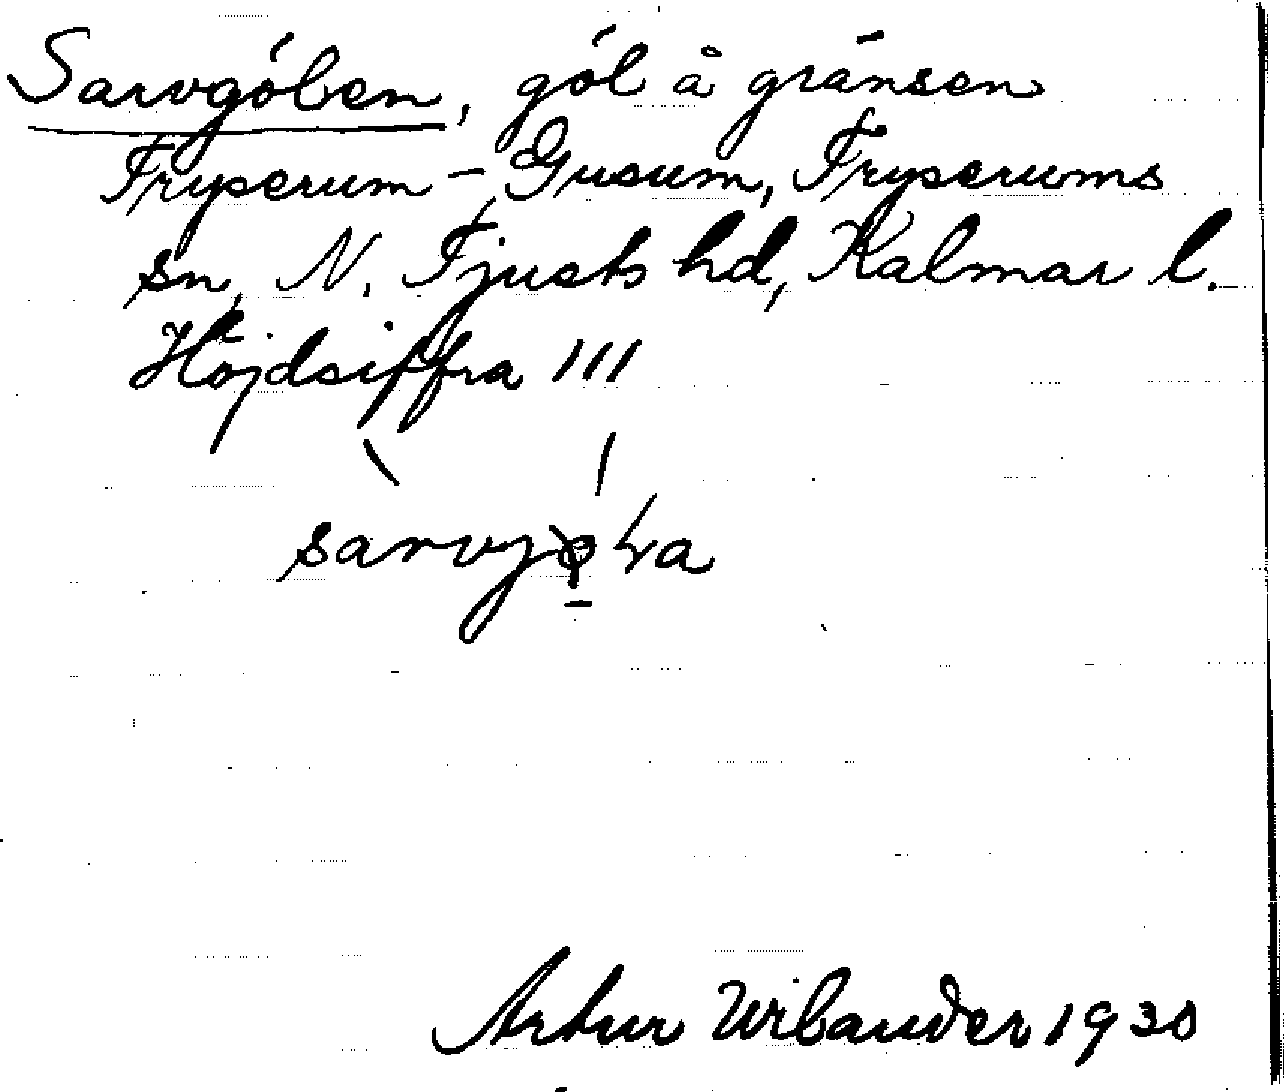 Sarvgölen, göl å gränsen
Tryserum – Gusum, Tryserums
sn, N. Tjusts hd, Kalmar l.
Höjdsiffra 111
Artur Wilander 1930